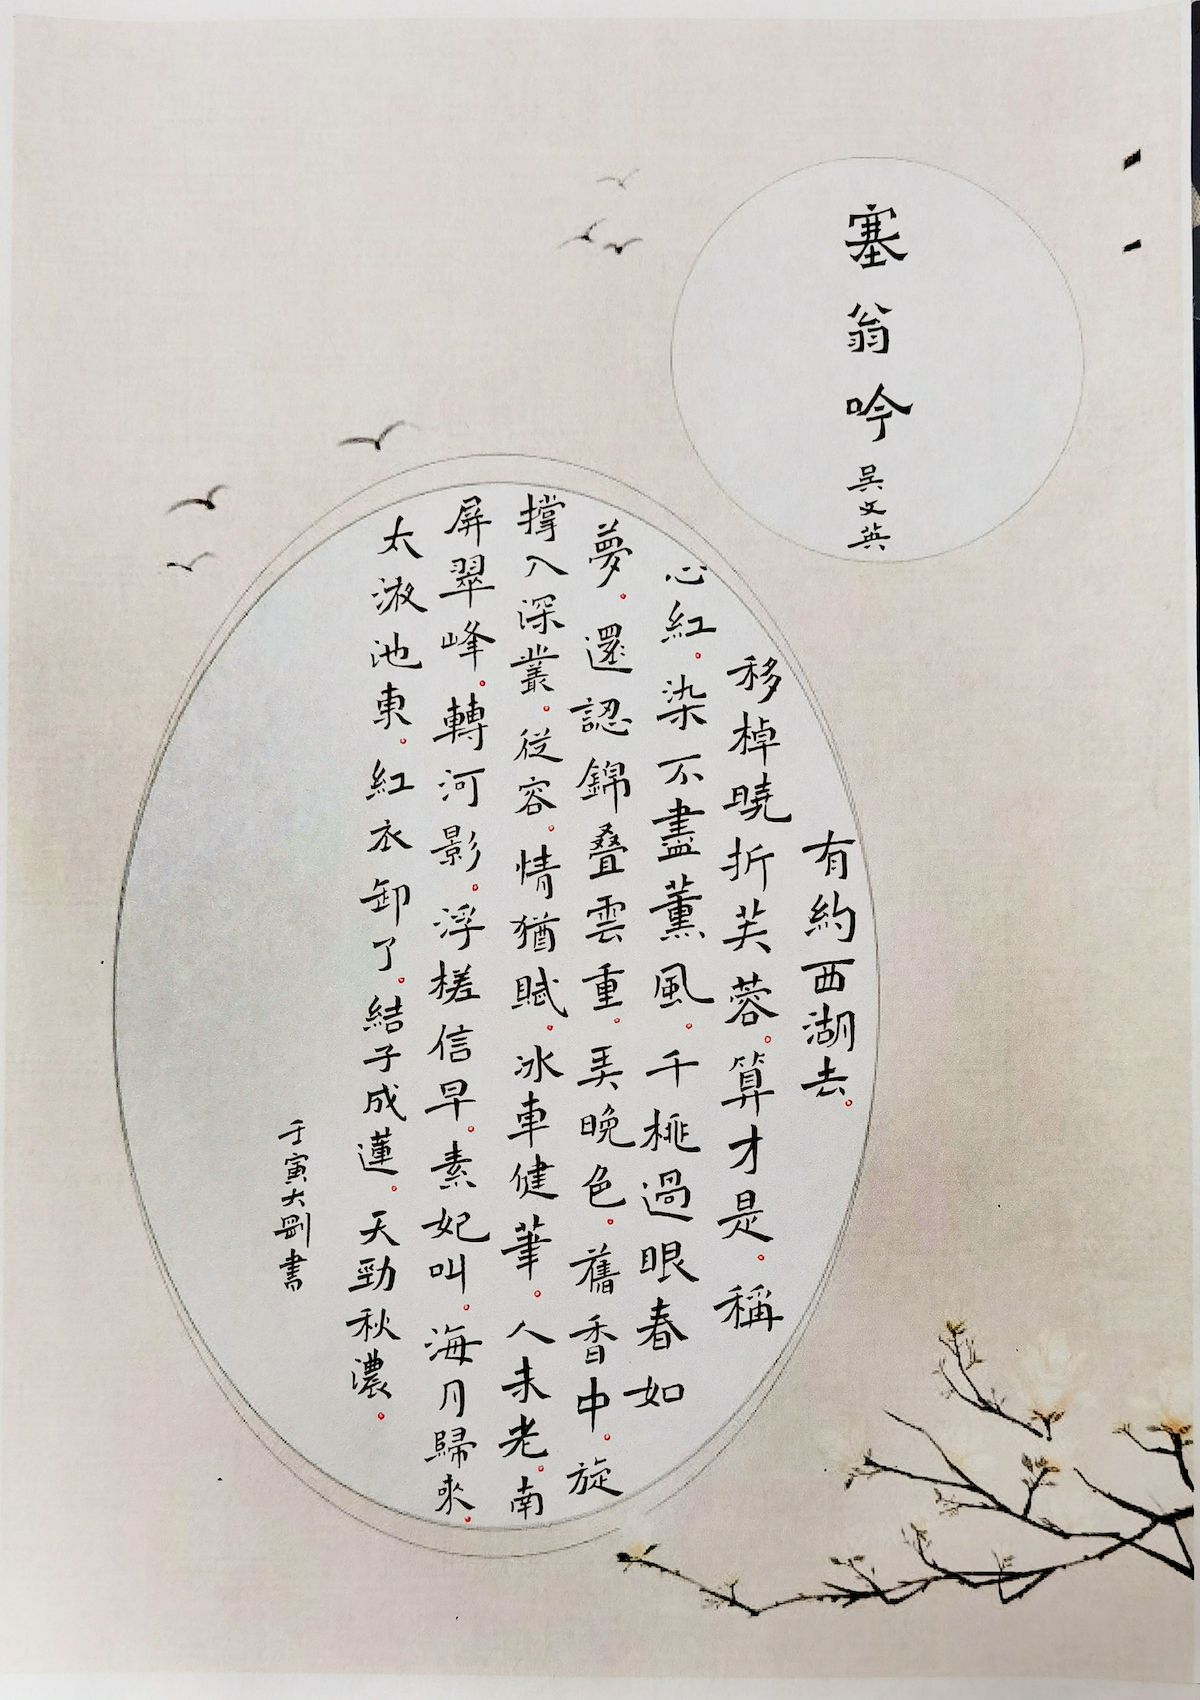 塞翁吟 吳文英
有約西湖去。
移棹曉折芙蓉。算才是。稱
心紅。染不盡薰風。千桃過眼春如
夢。還認錦疊雲重。弄晚色。舊香中。旋
撐入深叢。從容。情猶賦。冰車健筆。人未老。南
屏翠峰。轉河影。浮槎信早。素妃叫。海月歸來。
太液池東。紅衣卸了。結子成蓮。天勁秋濃。
壬寅大剛書